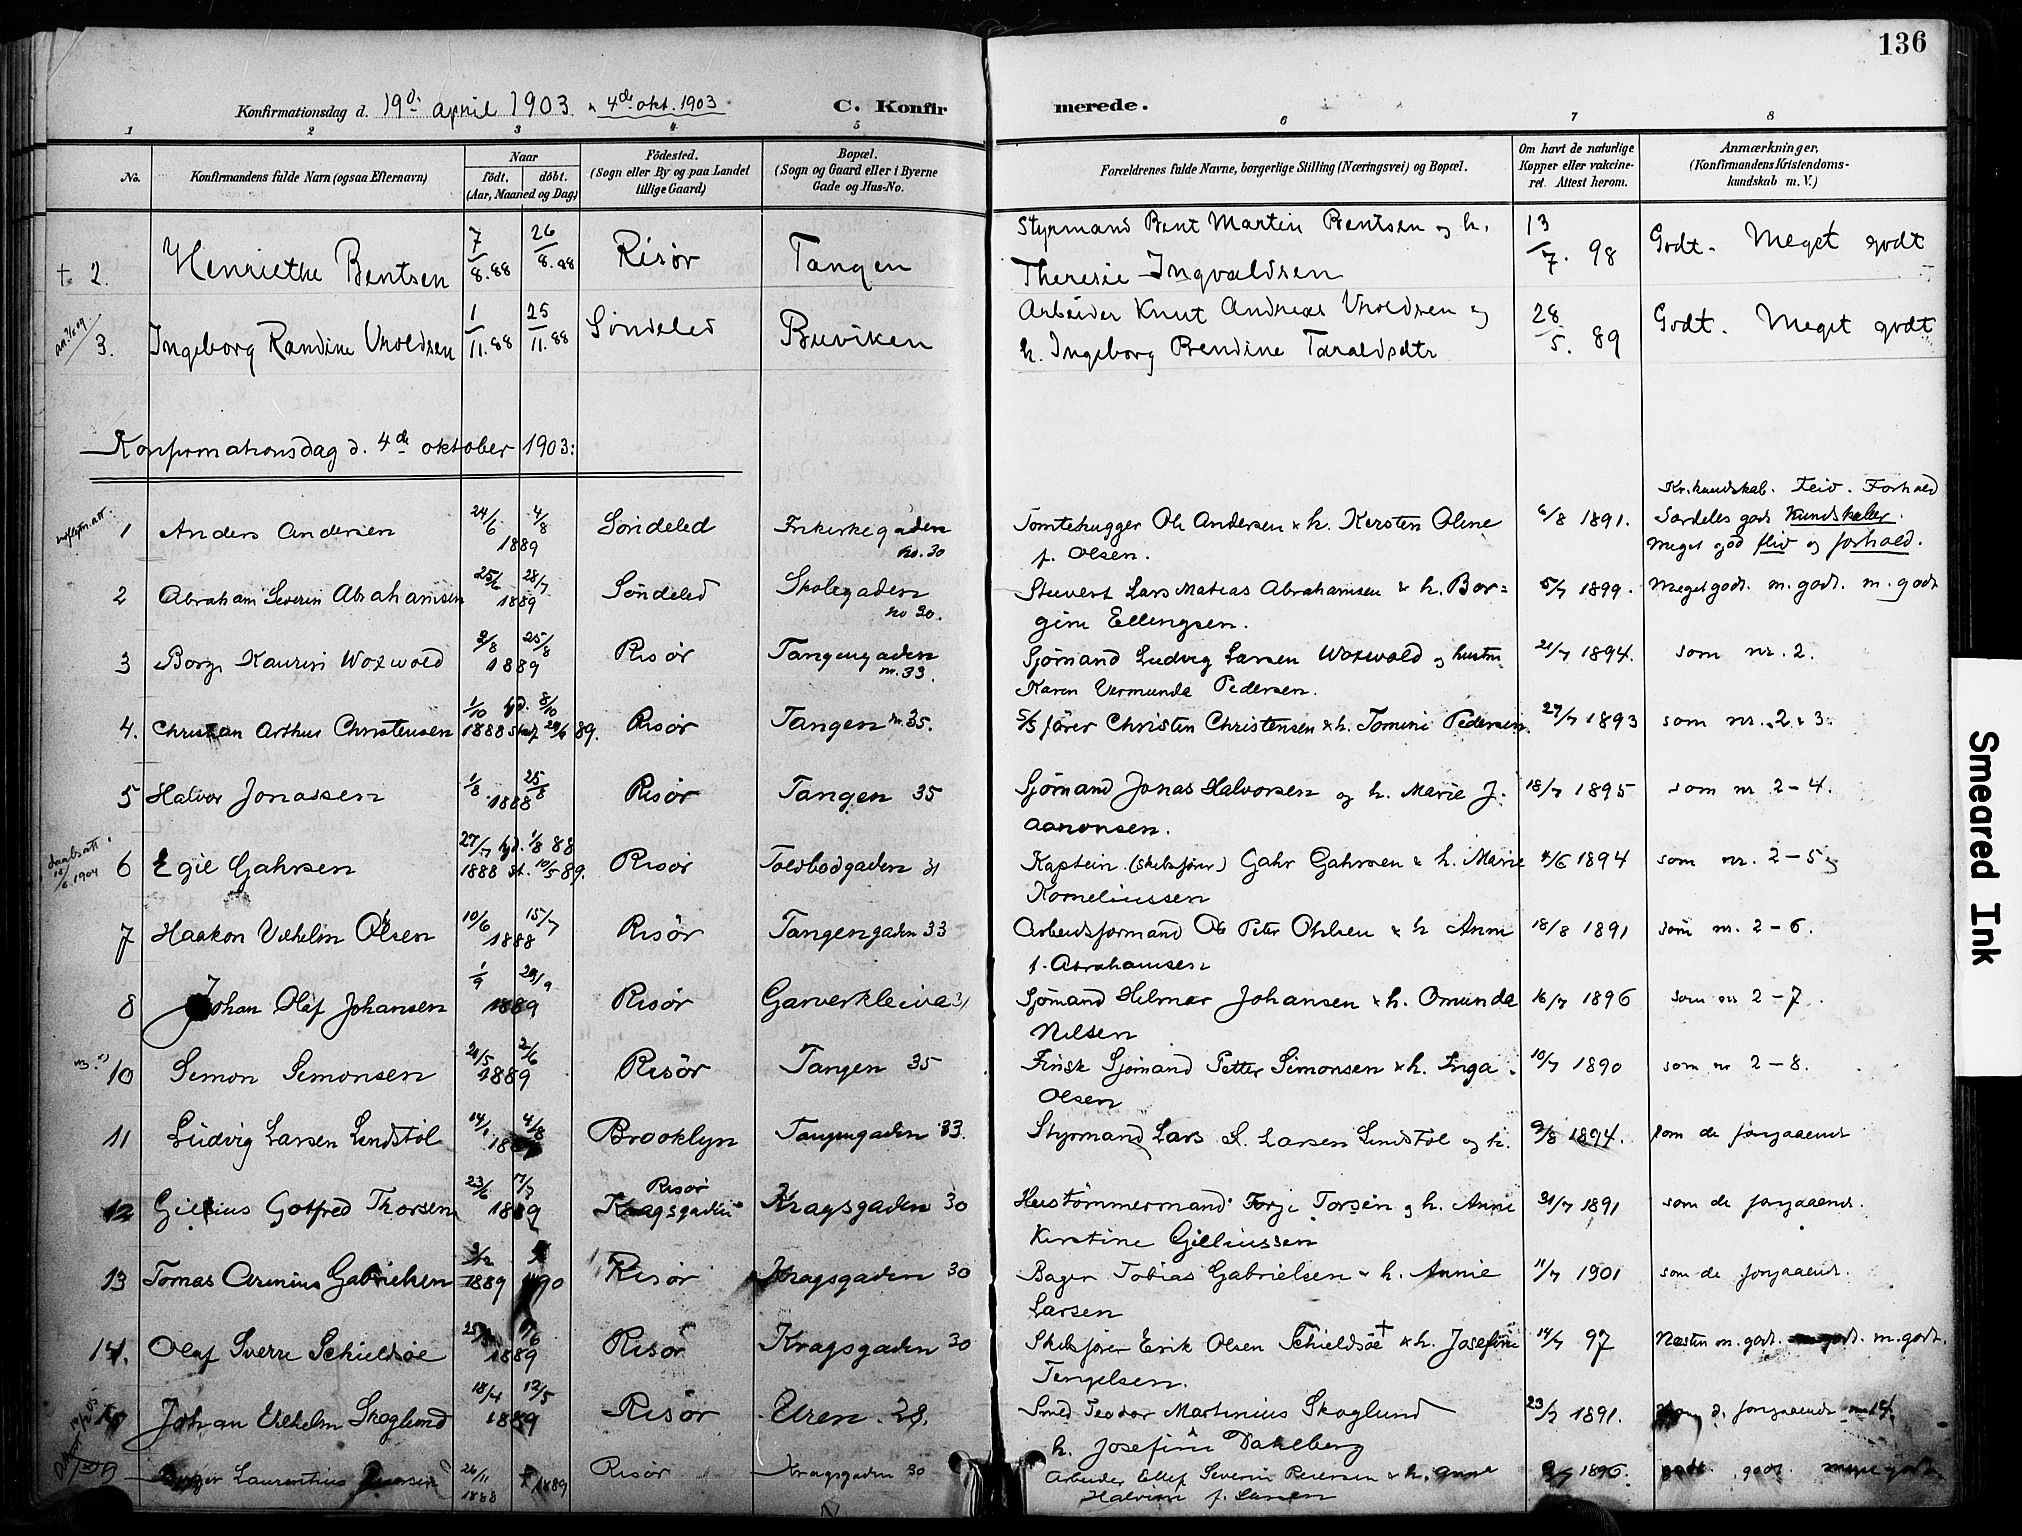 136
Konfirmationsdag d. 19de april 1903 & 4de okt. 1903 C. Konfirmerede.
1 2 3 4 5 6 7 8
No. Konfirmandens fulde Navn (ogsaa Efternavn) Naar Födt. döbt. (Aar, Maaned og Dag) Födested. (Sogn eller By og paa Landet tillige Gaard) Bopæl. (Sogn og Gaard eller i Byerne Gade og Hus-No. Forældrenes fulde Navne, borgerlige Stilling (Næringsvei) og Bopæl. Om havt de naturlige Kopper eller vaccineret. Attest herom. Anmærkninger, (Konfirmandens Kristendomskundskab m. V.)
2. Henriethe Bentsen 7/8.88 26/8.88 Risør Tangen Styrmand Bent Martin Bentsen og h. 13/7. 98 Godt. Meget godt
Theresie Ingvaldsen
3. Ingeborg Randine Vroldsen 1/11.88 25/11.88 Søndeled Buviken Arbeider Knut Andreas Vroldsen og 28/5. 89 Godt. Meget godt
h. Ingeborg Bendine Taraldsdtr
Konfirmationsdag d. 4de oktober 1903:
Kr. kundskab. Fliv. Forhold
1 Anders Andersen 24/6 4/8 1889 Søndeled Frikirkegaden no. 30 Tomtehugger Ole Andersen & h. Kersten Oline 6/8 1891. Særdeles gode kundskaber.
f. Olsen. Meget god fliv og forhold.
2 Abraham Severin Abrahamsen 25/6 28/7 1889 Søndeled Skolegaden no 20. Stuvert Lars Matias Abrahamsen & h. Bor= 5/7 1899. Meget godt. m. godt. m. godt
gine Ellingsen.
3 Borge Kaurin Woxwold 2/8 25/8 1889 Risør Tangengaden nr. 33. Sjømand Ludvig Larsen Woxwold og hustru 21/7 1894. som nr. 2.
Karen Vermunda Pedersen.
4. Christian Arthur Christensen 1/10 8/10 1888 29/6 89. Risør Tangen nr. 35. S/S fører Christen Christensen & h. Tomine Pedersen. 27/7 1893 som nr. 2 & 3.
5 Halvor Jonassen 1/8 25/8 1888 Risør Tangen 35 Sjømand Jonas Halvorsen og h. Marie J. 18/7 1895 som nr 2-4.
Aanonsen.
6 Egil Gahrsen 27/7 1/8 88 1888 10/5 89. Risør Toldbodgaden 31 Kaptein (skibsfører) Gahr Gahrsen & h. Marie 4/6 1894 som nr. 2-5
Korneliussen
7 Haakon Vilhelm Olsen 10/6 15/7 1888 Risør Tangengaden 33 Arbeidsformand Ole Peter Ohlsen & h Anne 18/8 1891 som nr. 2-6.
f. Abrahamsen
8 Johan Olaf Johansen 1/9 29/9 1889 Risør Garverkleiva 31 Sjømand Hilmar Johansen & h. Omunda 16/7 1896 som nr 2-7.
Nilsen
10 Simon Simonsen 21/5 2/6 1889 Risør Tangen 35 Finsk Sjømand Petter Simonsen & h. Inga 10/7 1890 som nr 2-8.
Olsen
11 Ludvig Larsen Lindstøl 14/1 4/8 Brooklyn Tangengaden 33. Styrmand Lars L. Larsen Lindstøl og h. 9/8 1894. som de forgaaende
12 Gillius Gotfred Thorsen 23/6 1889 Risør Kragsgaden Kragsgaden 30 Hustømmermand Torje Torsen og h. Anne 31/7 1891 som de forgaaende.
Kirstine Gilliussen
13 Tomas Arenius Gabrielsen 1889 90 Risør Kragsgaden 30 Bager Tobias Gabrielsen & h. Annie 11/7 1901 som de forgaaende.
Larsen
14. Olaf Sverre Schieldsøe 1889 Risør Kragsgaden 30 Skibsfører Erik Olsen Schieldsøe † & h. Josefine 14/7 97 Næsten m. godt. godt. m. godt.
Tengelsen.
Johan Vilhelm Skoglund 18/4 12/5 1889 Risør Uren 28. Smed Teodor Martinius Skoglund 23/7 1891. forgaaende
h. Josefine Dahlberg
Laurentius 26/11 1888 1889 Risør Kragsgaden 30 Arbeider Ellef Severin & h. 1896. godt. godt. meget godt.
Halvine f. Larsen
Smeared Ink